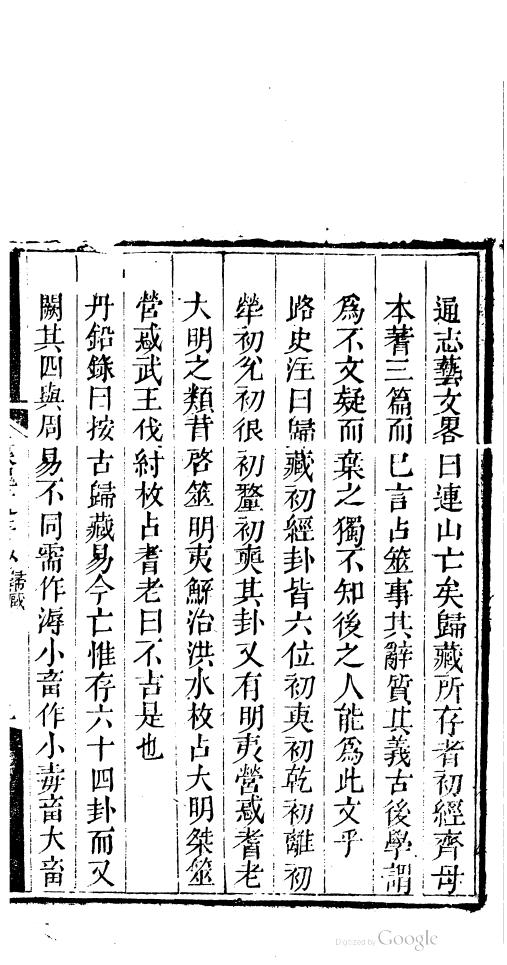 通志藝文畧曰連山亡矣歸藏所存者初經齊母
本蓍三篇而巳言占筮事其辭質其義古後學謂
爲不文疑而棄之獨不知後之人能爲此文乎
路史注曰歸藏初經卦皆六位初奭初乾初離初
犖初兊初很初釐初奭其卦又有明夷營惑耆老
大明之類昔啓筮明夷鯀治洪水枚占大明桀筮
營惑武王伐紂枚占耆老曰不占是也
丹鉛錄曰按古歸藏易今亡惟存六十四卦而又
闕其四與周易不同需作溽小畜作小毒畜大畜
歸藏
Digitized by Google